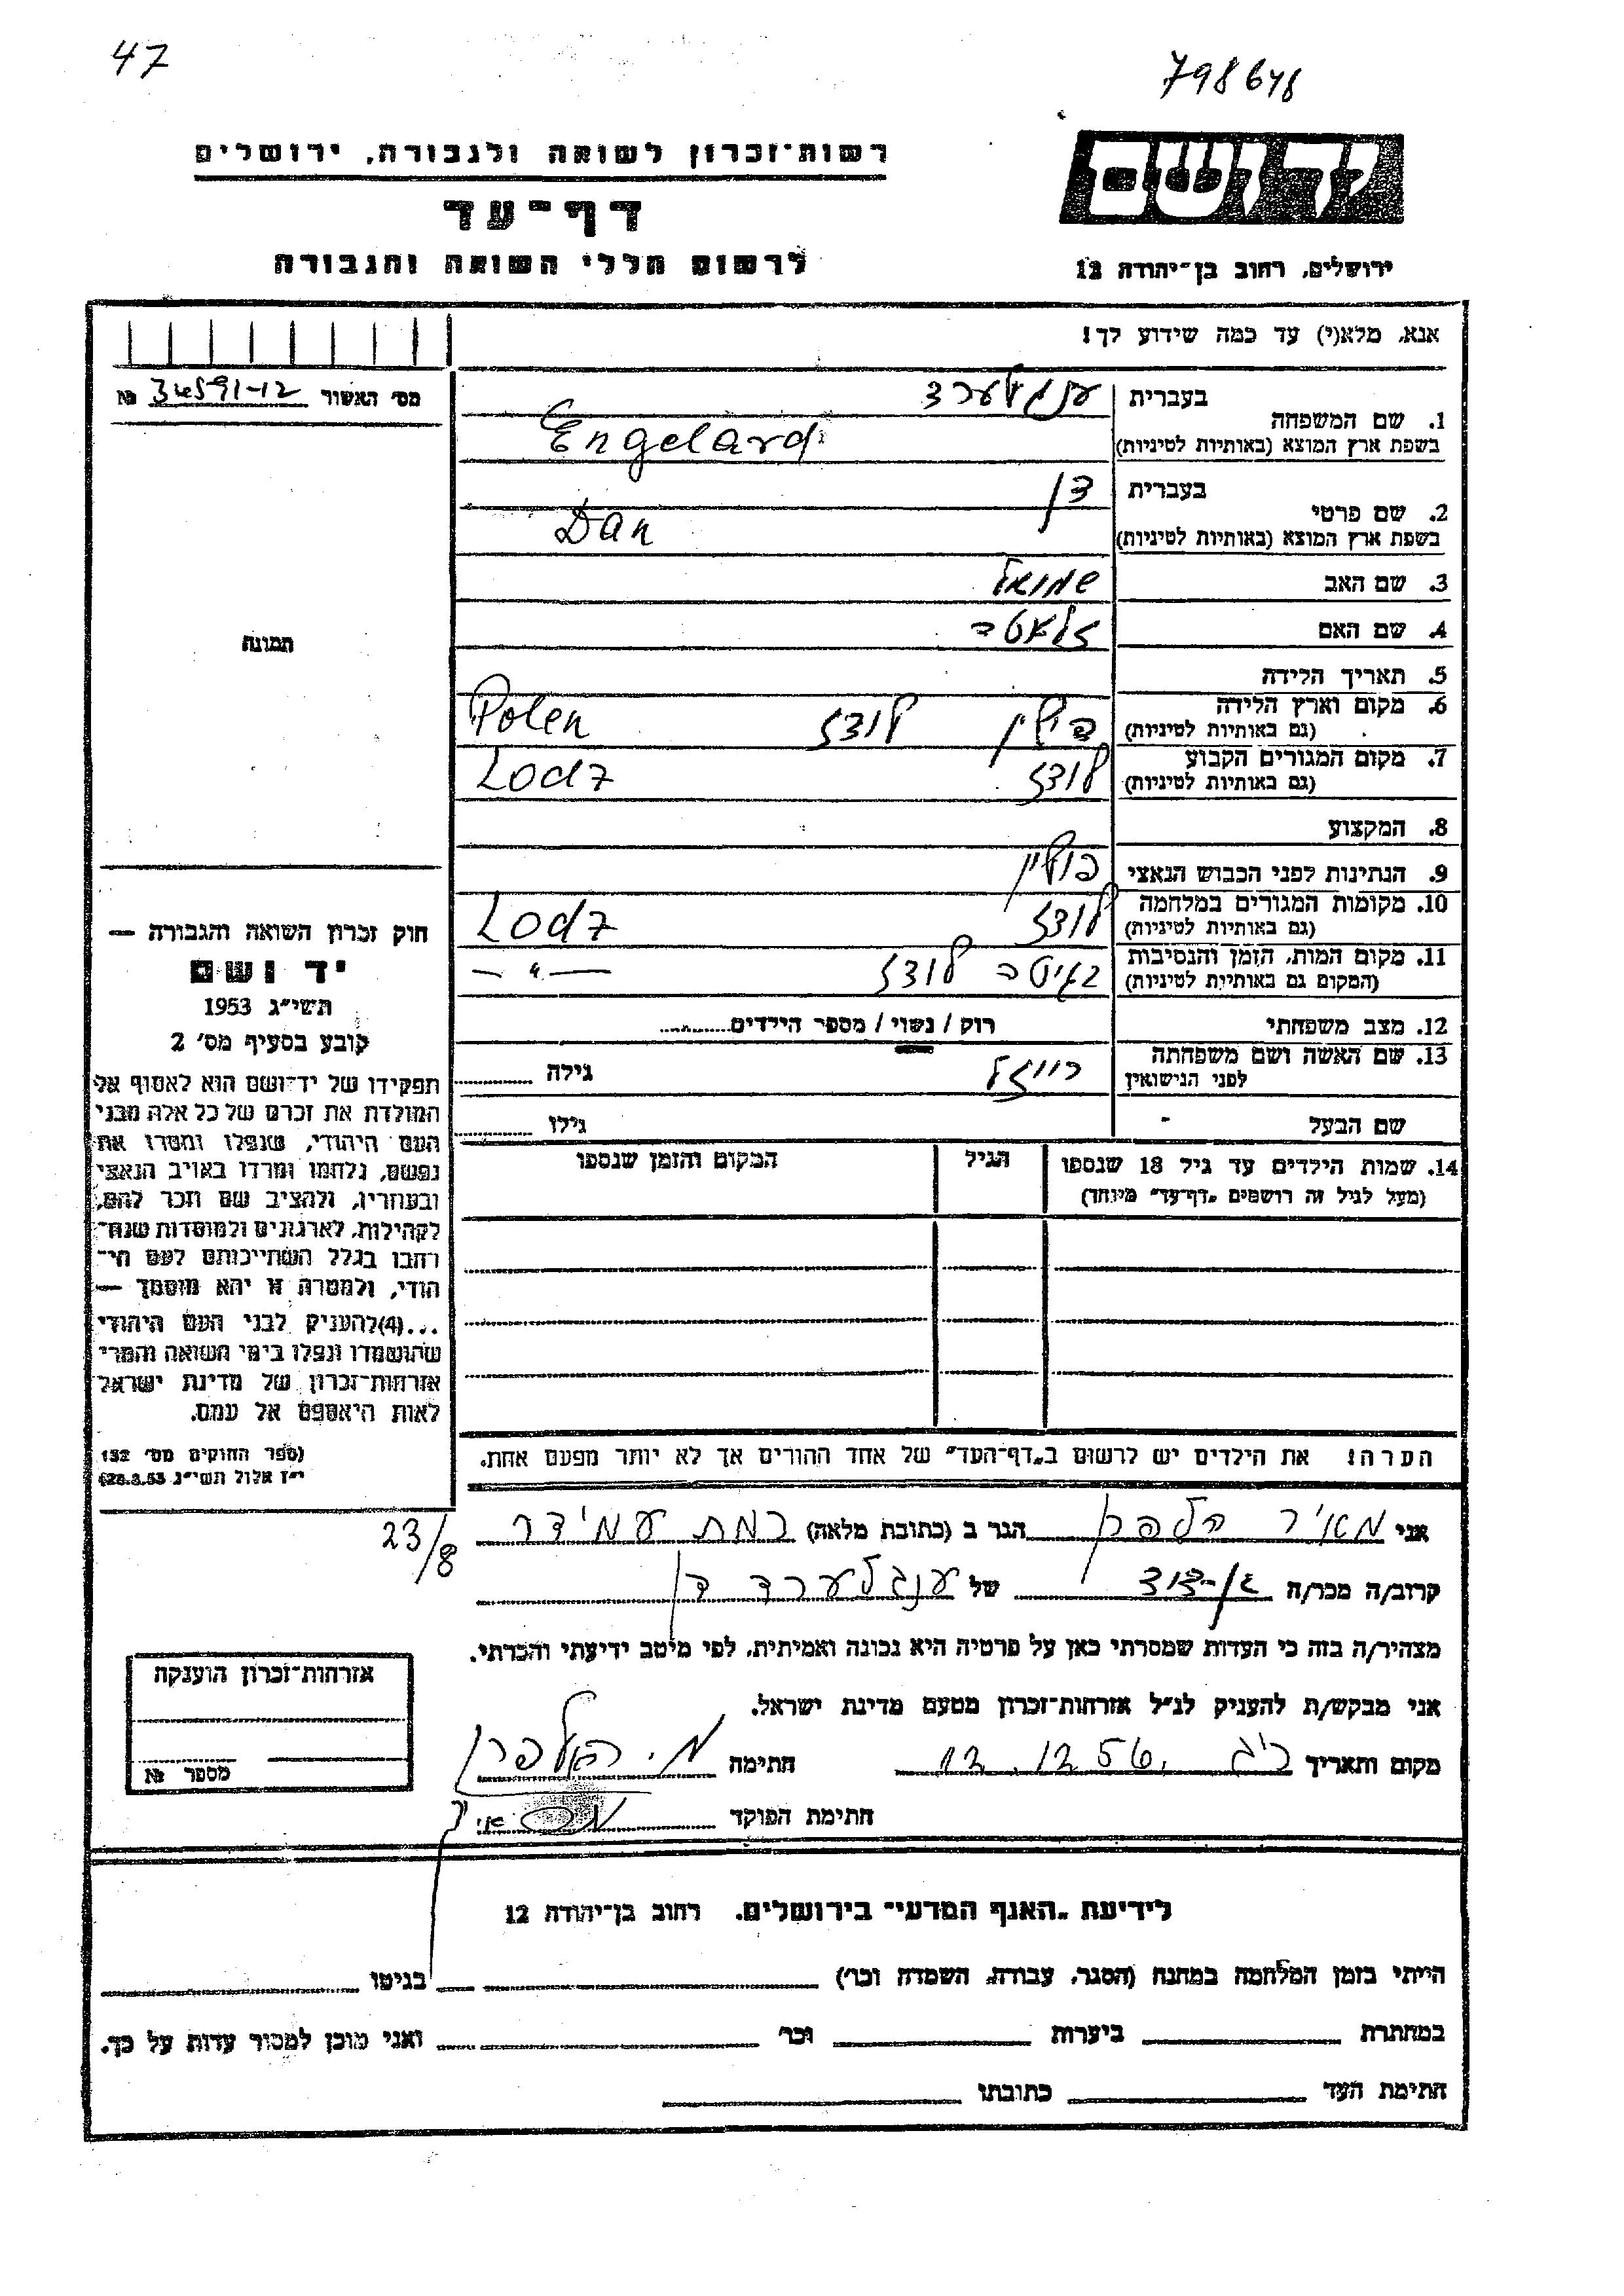 47
798648
רשות-זכרון לשואה ולגבורה, ירושלים
דף-עד
לרשום חללי השואה והגבורה
יד ושם
ירושלים, רחוב בן-יהודה 12
אנא, מלא(י) עד כמה שידוע לך!
מס' האשור 34591-12 №
1. שם המשפחה בעברית ענגלערד
בשפת ארץ המוצא (באותיות לטיניות) Engelard
2. שם פרטי בעברית דן
בשפת ארץ המוצא (באותיות לטיניות) Dan
3. שם האב שמואל
4. שם האם זלאטה
5. תאריך הלידה
6. מקום וארץ הלידה (גם באותיות לטיניות) פולין לודז Polen
7. מקום המגורים הקבוע (גם באותיות לטיניות) לודז Lodz
8. המקצוע
9. הנתינות לפני הכבוש הנאצי פולין
10. מקומות המגורים במלחמה (גם באותיות לטיניות) לודז Lodz
11. מקום המות, הזמן והנסיבות (המקום גם באותיות לטיניות) בגיטה לודז — " —
12. מצב משפחתי רוק / נשוי / מספר הילדים
13. שם האשה ושם משפחתה לפני הנישואין רייזל גילה
שם הבעל - גילו
14. שמות הילדים עד גיל 18 שנספו הגיל המקום והזמן שנספו
(מעל לגיל זה רושמים „דף-עד" מיוחד)
הערה: את הילדים יש לרשום ב„דף-העד" של אחד ההורים אך לא יותר מפעם אחת.
תמונה
חוק זכרון השואה והגבורה —
יד ושם
תשי"ג 1953
קובע בסעיף מס' 2
תפקידו של יד-ושם הוא לאסוף אל
המולדת את זכרם של כל אלה מבני
העם היהודי, שנפלו ומסרו את
נפשם, נלחמו ומרדו באויב הנאצי
ובעוזריו, ולהציב שם וזכר להם,
לקהילות, לארגונים ולמוסדות שנח-
רבו בגלל השתייכותם לעם הי-
הודי, ולמטרה זו יהא מוסמך —
...(4) להעניק לבני העם היהודי
שהושמדו ונפלו בימי השואה והמרי
אזרחות-זכרון של מדינת ישראל
לאות היאספם אל עמם.
(ספר החוקים מס' 132
י"ז אלול תשי"ג 28.8.53)
23/8
אני מאיר הלפרן הגר ב (כתובת מלאה) רמת עמידר
קרוב/ה מכר/ה בן-דוד של ענגלערד דן
מצהיר/ה בזה כי העדות שמסרתי כאן על פרטיה היא נכונה ואמיתית, לפי מיטב ידיעתי והכרתי.
אני מבקש/ת להעניק לנ"ל אזרחות-זכרון מטעם מדינת ישראל.
מקום ותאריך ר"ג 12.12.56 חתימה מ. האלפרן
חתימת הפוקד
אזרחות-זכרון הוענקה
מספר №
לידיעת „האגף המדעי" בירושלים. רחוב בן-יהודה 12
הייתי בזמן המלחמה במחנה (הסגר, עבודה, השמדה וכו') בגיטו
במחתרת ביערות וכו' ואני מוכן למסור עדות על כך.
חתימת העד כתובתו